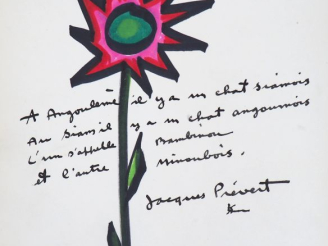 A Angoulême il y a un chat siamois
Au Siam il y a un chat angoumois
L'un s'appelle Bambinou
et l'autre Minoubois.
Jacques Prévert